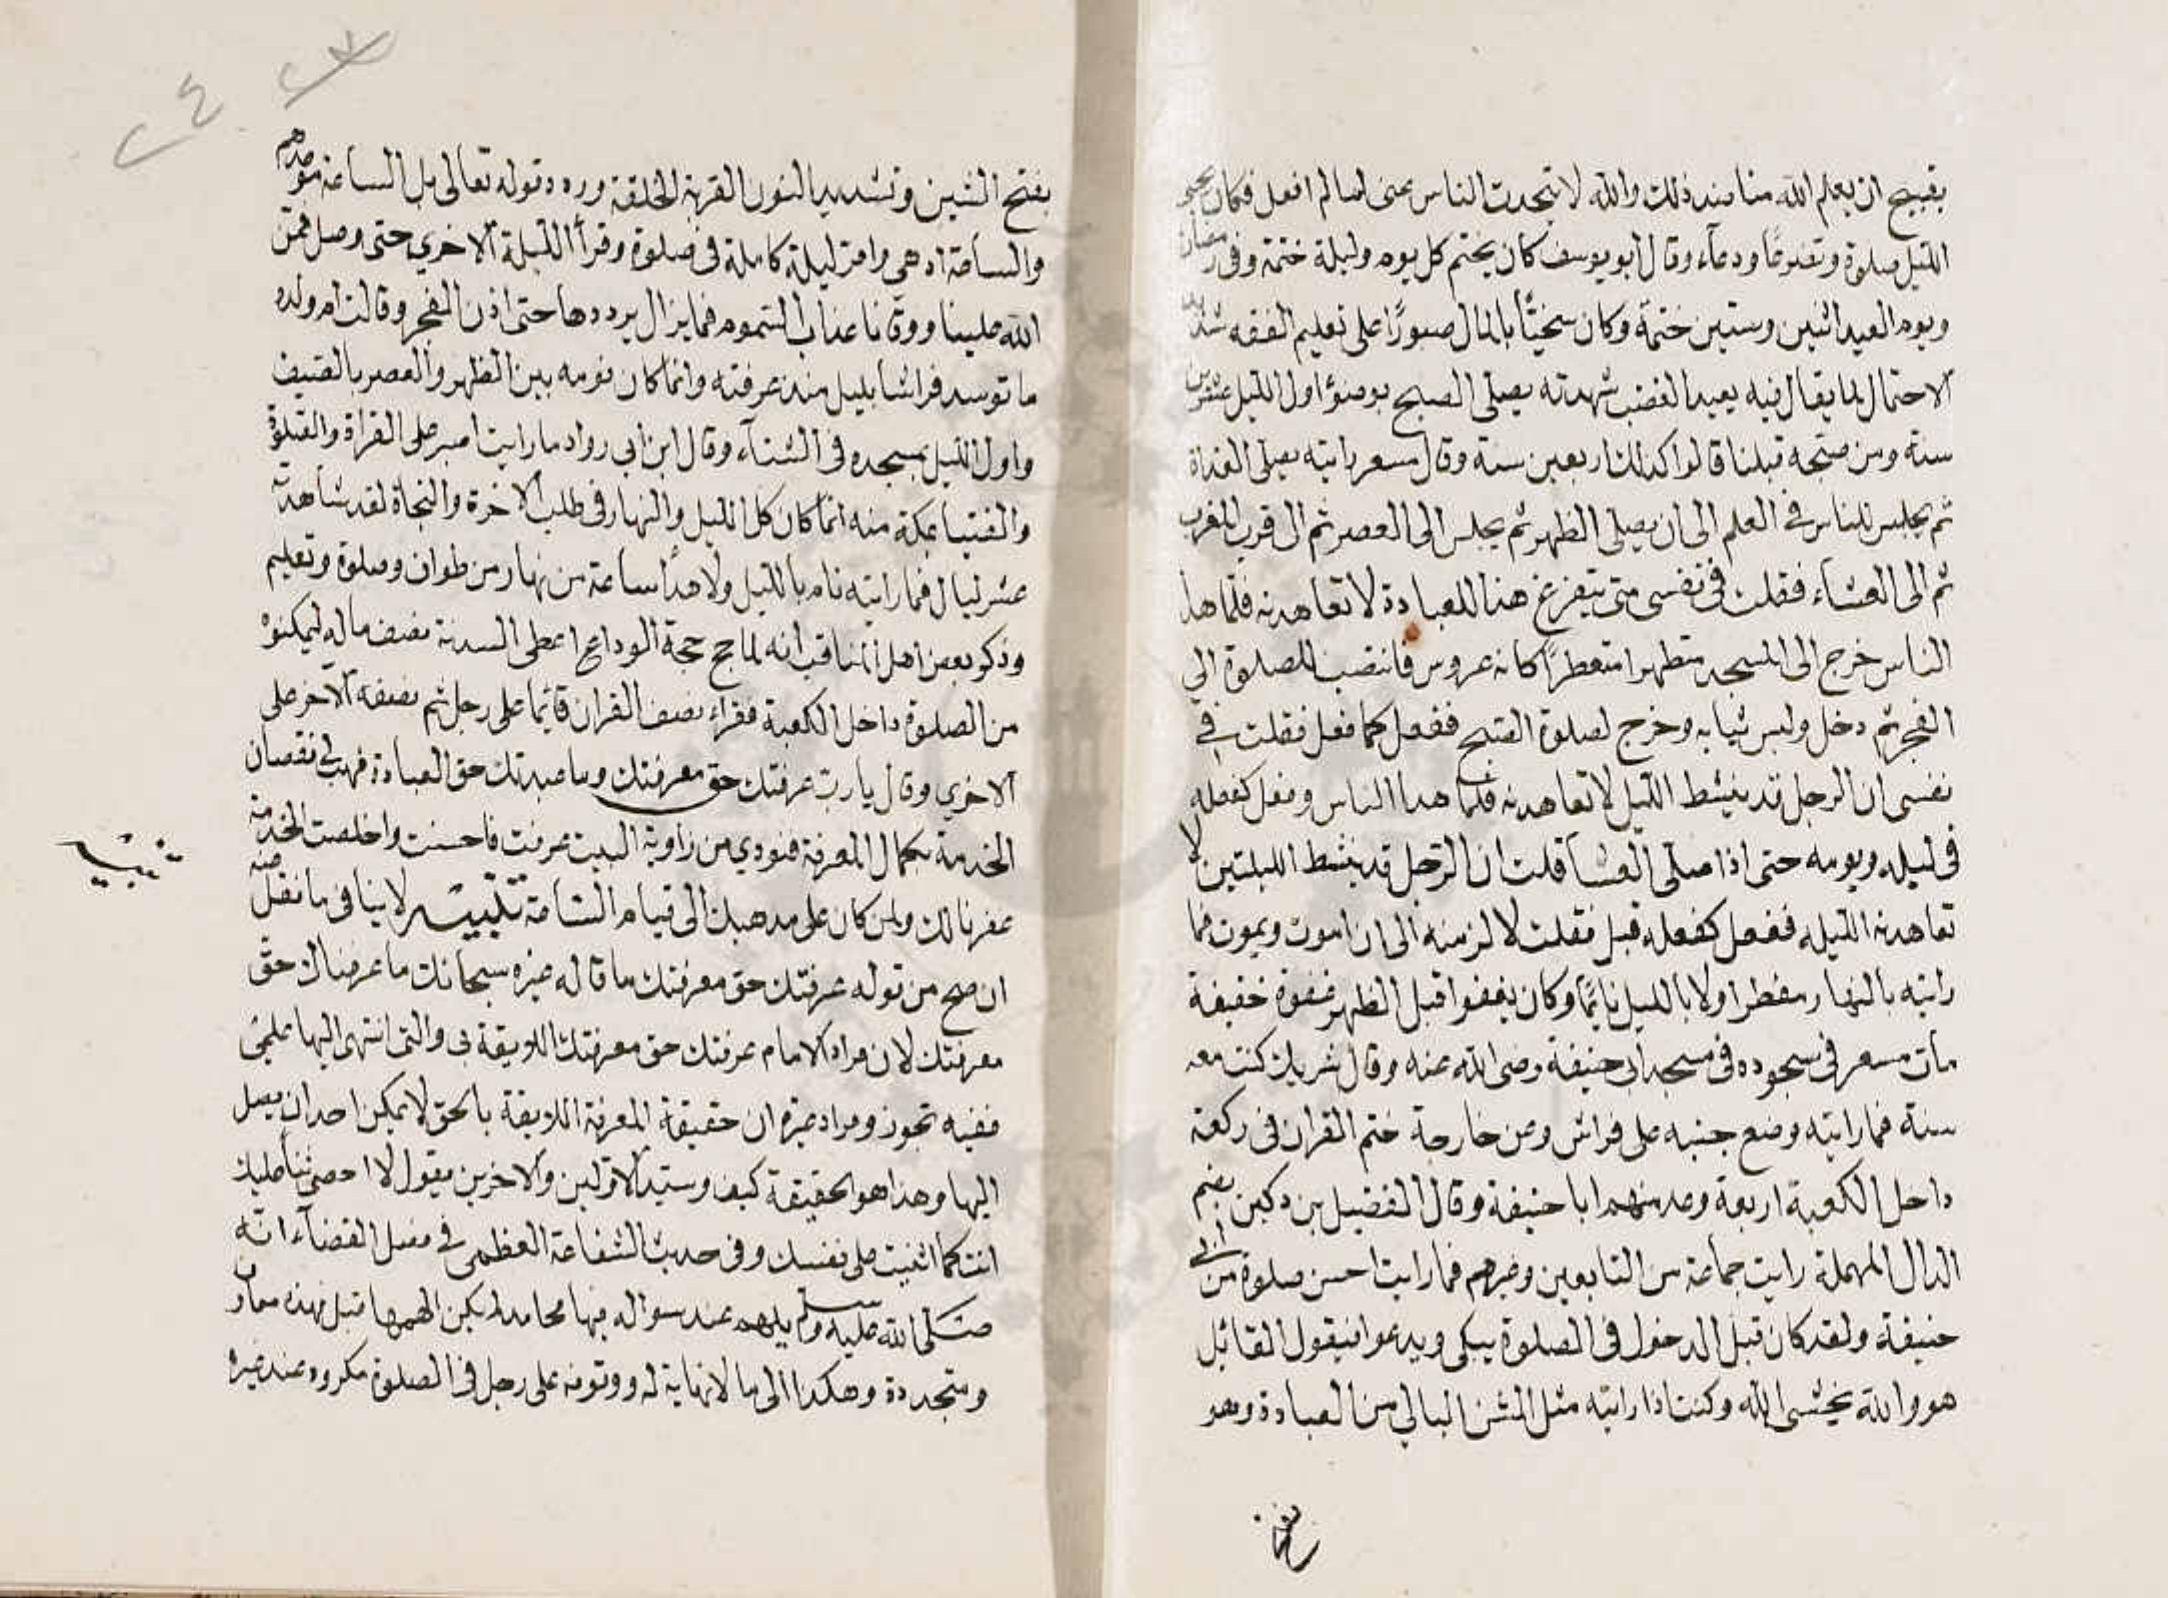 بقبيح ان يعلم الله منا ضد ذلك والله لا يتحدث الناس عني لما لم افعل فكان يحيى
الليل صلوة وتضرعا ودعآء وقال ابو يوسف كان يختم كل يوم وليلة ختمة وفي رمضان
ويوم العيد اثنين وستين ختمة وكان سخيًّا بالمال صبورًا على تعليم الفقه شديد
الاحتمال لما يقال فيه بعيد الغضب شهدته يصلى الصبح بوضؤ اول الليل عشرين
سنة ومن صحبه قبلنا قالوا كذلك اربعين سنة وقال مسعر رايته يصلى الغداة
ثم يجلس للناس في العلم الى ان يصلى الظهر ثم يجلس الى العصر ثم الى قرب المغرب
ثم الى العشاء فقلت في نفسى متى يتفرغ هذا للعبادة لاتعاهدنه فلما هدأ
الناس خرج الى المسجد متطهرا متعطرًا كانه عروس فانتصب للصلوة الي
الفجر ثم دخل ولبس ثيابه وخرج لصلوة الصبح ففعل كما فعل فقلت في
نفسى ان الرجل قد ينشط الليل لاتعاهدنه فلما هدا الناس وفعل كفعله
في ليله ويومه حتى اذا صلى العشا قلت ان الرجل قد ينشط الليلتين لا
تعاهدنه الليله ففعل كفعله قبل فقلت لالزمنه الى ان اموت ويموت فما
رايته بالنهار مفطرا ولا بالليل نايمًا وكان يغفوا قبل الظهر غفوة خفيفة
مات مسعر في سجوده في مسجد ابى حنيفة رضى الله عنه وقال شريك كنت معه
سنة فما رايته وضع جنبه على فراش وعن خارجة ختم القران في ركعة
داخل الكعبة اربعة وعد منهم ابا حنيفة وقال الفضيل بن دكين بضم
الدال المهملة رايت جماعة من التابعين وغيرهم فما رايت احسن صلوة من ابي
حنيفة ولقد كان قبل الدخول في الصلوة يبكى ويدعوا فيقول القائل
هو والله يخشى الله وكنت اذا رايته مثل الشن البالي من العبادة وهو
بفتح
بفتح الشين وتشديد النون القربة الخلقة وردد قوله تعالى بل الساعة موعدهم
والساعة ادهى وامر ليلة كاملة في صلوة وقرأ الليلة الاخري حتى وصل فمن
الله علينا ووقانا عذاب السموم فما يزال يرددها حتى اذن الفجر وقالت ام ولده
ما توسد فراشا بليل منذ عرفته وانما كان نومه بين الظهر والعصر بالصيف
واول الليل بمسجده في الشتآء وقال ابن ابي رواد ما رايت اصبر على القراة والصلوة
والفتيا بمكة منه انما كان كل الليل والنهار في طلب الاخرة والنجاة لقد شاهدته
عشر ليال فما رايته نام بالليل ولا هدأ ساعة من نهار من طواف وصلوة وتعليم
وذكر بعض اهل المناقب انه لما حج حجة الوداع اعطى السدنة نصف ماله ليمكنوه
من الصلوة داخل الكعبة فقراء نصف القران قائما على رجل ثم نصفه الآخر على
الاخري وقال يا رب عرفتك حق معرفتك وما عبدتك حق العبادة فهب لي نقصان
الخدمة بكمال المعرفة فنودي من زاوية البيت عرفت فاحسنت واخلصت الخدمة
غفرنا لك ولمن كان على مذهبك الى قيام الساعة تنبيه لا ينافى ما نقل عنه
تنبيه
ان صح من قوله عرفتك حق معرفتك ما قاله غيره سبحانك ما عرفناك حق
معرفتك لان مراد الامام عرفتك حق معرفتك اللايقة بى والتى انتهى اليها علمي
ففيه تجوز ومراد غيره ان حقيقة المعرفة اللايقة بالحق لا يمكن احد ان يصل
اليها وهذا هو الحقيقة كيف وسيد الاولين والاخرين يقول لا احصى ثناء عليك
انت كما اثنيت على نفسك وفى حديث الشفاعة العظمى في فصل القضآء انه
صلى الله عليه وسلم يلهم عند سواله فيها محامد لم يكن الهمها قبل فهذه معارف
ومتجددة وهكذا الى ما لا نهاية له ووقوفه على رجل في الصلوة مكروه عند غيره